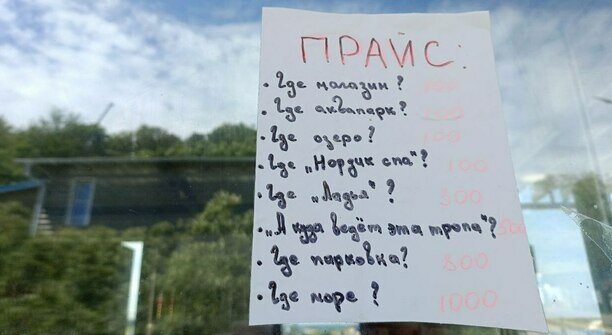 ПРАЙС:
• Где магазин? 100
• Где аквапарк? 100
• Где озеро? 100
• Где „Нордик спа"? 100
• Где „Ладья"? 500
• „А куда ведёт эта тропа"? 500
• Где парковка? 800
• Где море? 1000